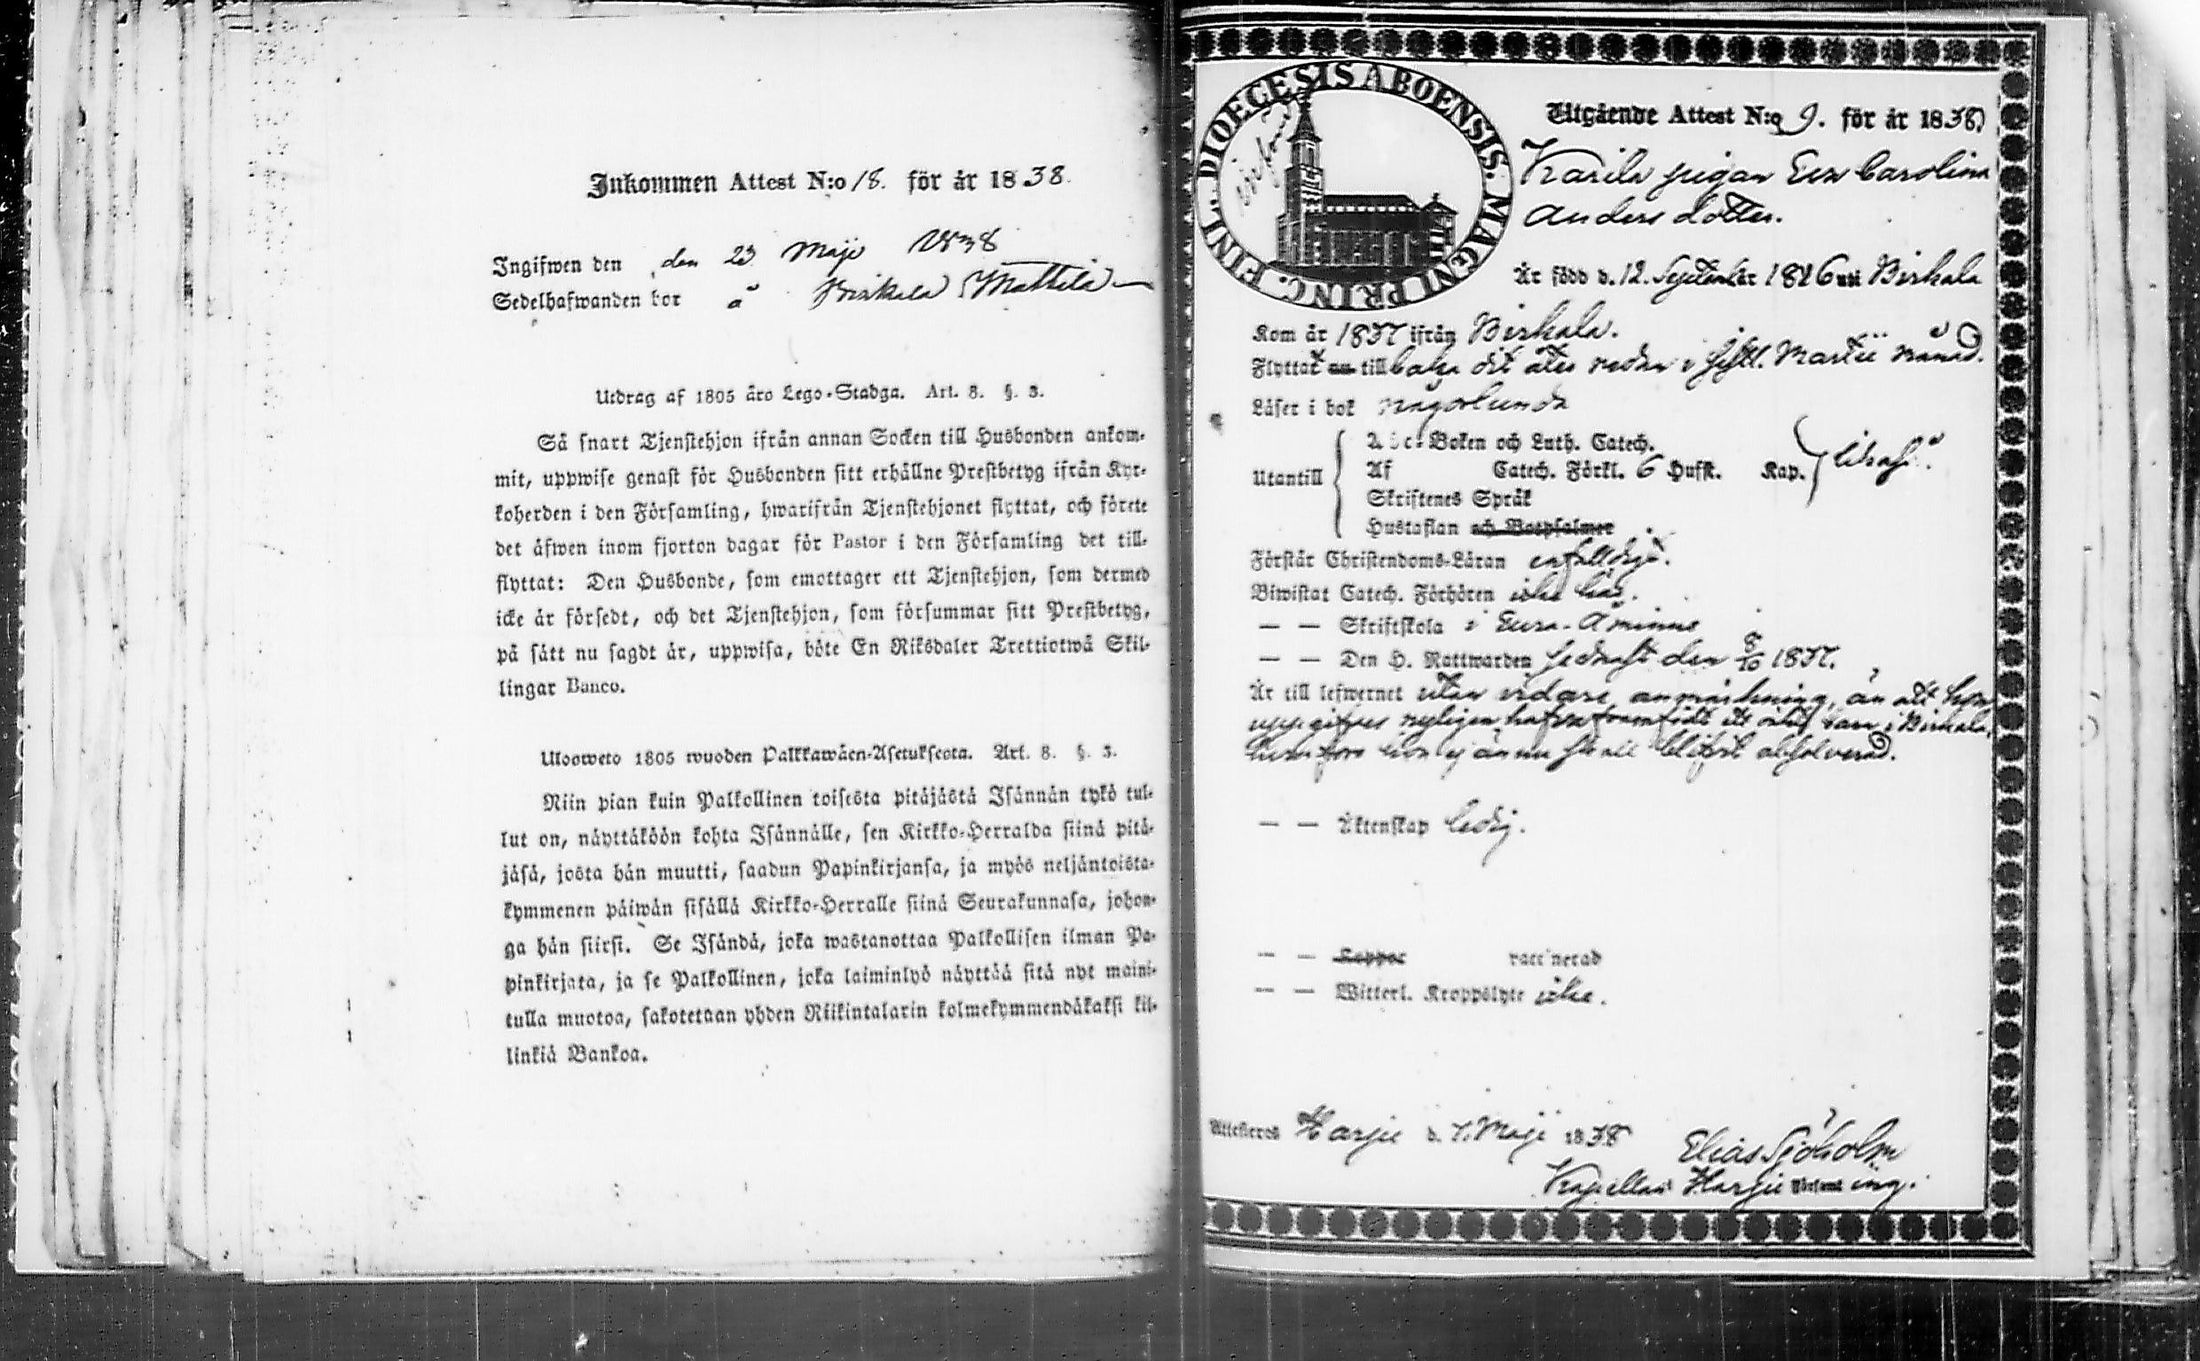 Inkommen Attest N:o 18. för år 1838.
Ingifwen den den 23 Maji 1838
Sedelhafwanden bor å Birkala Mattila
Utdrag af 1805 åro Lego-Stadga. Art. 8. §. 3.
Så snart Tjenstehjon ifrån annan Socken till Husbonden ankom-
mit, uppwise genast för Husbonden sitt erhållne Prestbetyg ifrån Kyr-
koherden i den Församling, hwarifrån Tjenstehjonet flyttat, och förete
det åfwen inom fjorton dagar för Pastor i den Församling det till-
flyttat: Den Husbonde, som emottager ett Tjenstehjon, som dermed
icke år försedt, och det Tjenstehjon, som försummar sitt Prestbetyg,
på sått nu sagdt år, uppwisa, böte En Riksdaler Trettiotwå Skil-
lingar Banco.
Ulosweto 1805 wuoden Palkkawåen-Asetuksesta. Art. 8. §. 3.
Niin pian kuin Palkollinen toisesta pitåjåstå Isånnån tykö tul-
lut on, nåyttåköön kohta Isånnålle, sen Kirkko-Herralda siinå pitå-
jåså, josta hån muutti, saadun Papinkirjansa, ja myös neljåntoista-
kymmenen påiwån sisållå Kirkko-Herralle siinå Seurakunnasa, johon-
ga hån siirsi. Se Isåndå, joka wastanottaa Palkollisen ilman Pa-
pinkirjata, ja se Palkollinen, joka laiminlyö nåyttåå sitå nyt maini-
tulla muotoa, sakotetaan yhden Riikintalarin kolmekymmendåkaksi kil-
linkiå Bankoa.
DIOECESIS ABOENSIS. MAGNI PRINC. FINL.
Utgående Attest N:o 9. för år 1838
Karila pigan Eva Carolina
Anders dotter.
Är född d. 12. September 1816 uti Birkala
Kom år 1837 ifrån Birkala.
Flyttat nu tillbaka dit åter redan i sistl. Martii månad.
Låser i bok någorlunda
Utantill
Abc-Boken och Luth. Catech.
Af Catech. Förkl. 6 Hufst. Kap.
Skriftenes Språk
Hustaflan och Botpsalmer
Förstår Christendoms-Låran enfaldigt.
Biwistat Catech. Förhören icke här.
— — Skriftskola i Eura-Åminne
— — Den H. Nattwarden sednast den 8/10 1837.
Är till lefwernet utan vidare anmärkning, än att hon
uppgifves nyligen hafva framfödt ett oäkta barn i Birkala,
hvarföre hon ej ännu skall blifvit absolverad.
— — Äktenskap ledig.
— — Koppor vaccinerad
— — Witterl. Kroppslyte icke.
Attesteras Harju d. 7. Maji 1838
Elias Sjöholm
Kapellan i Harju